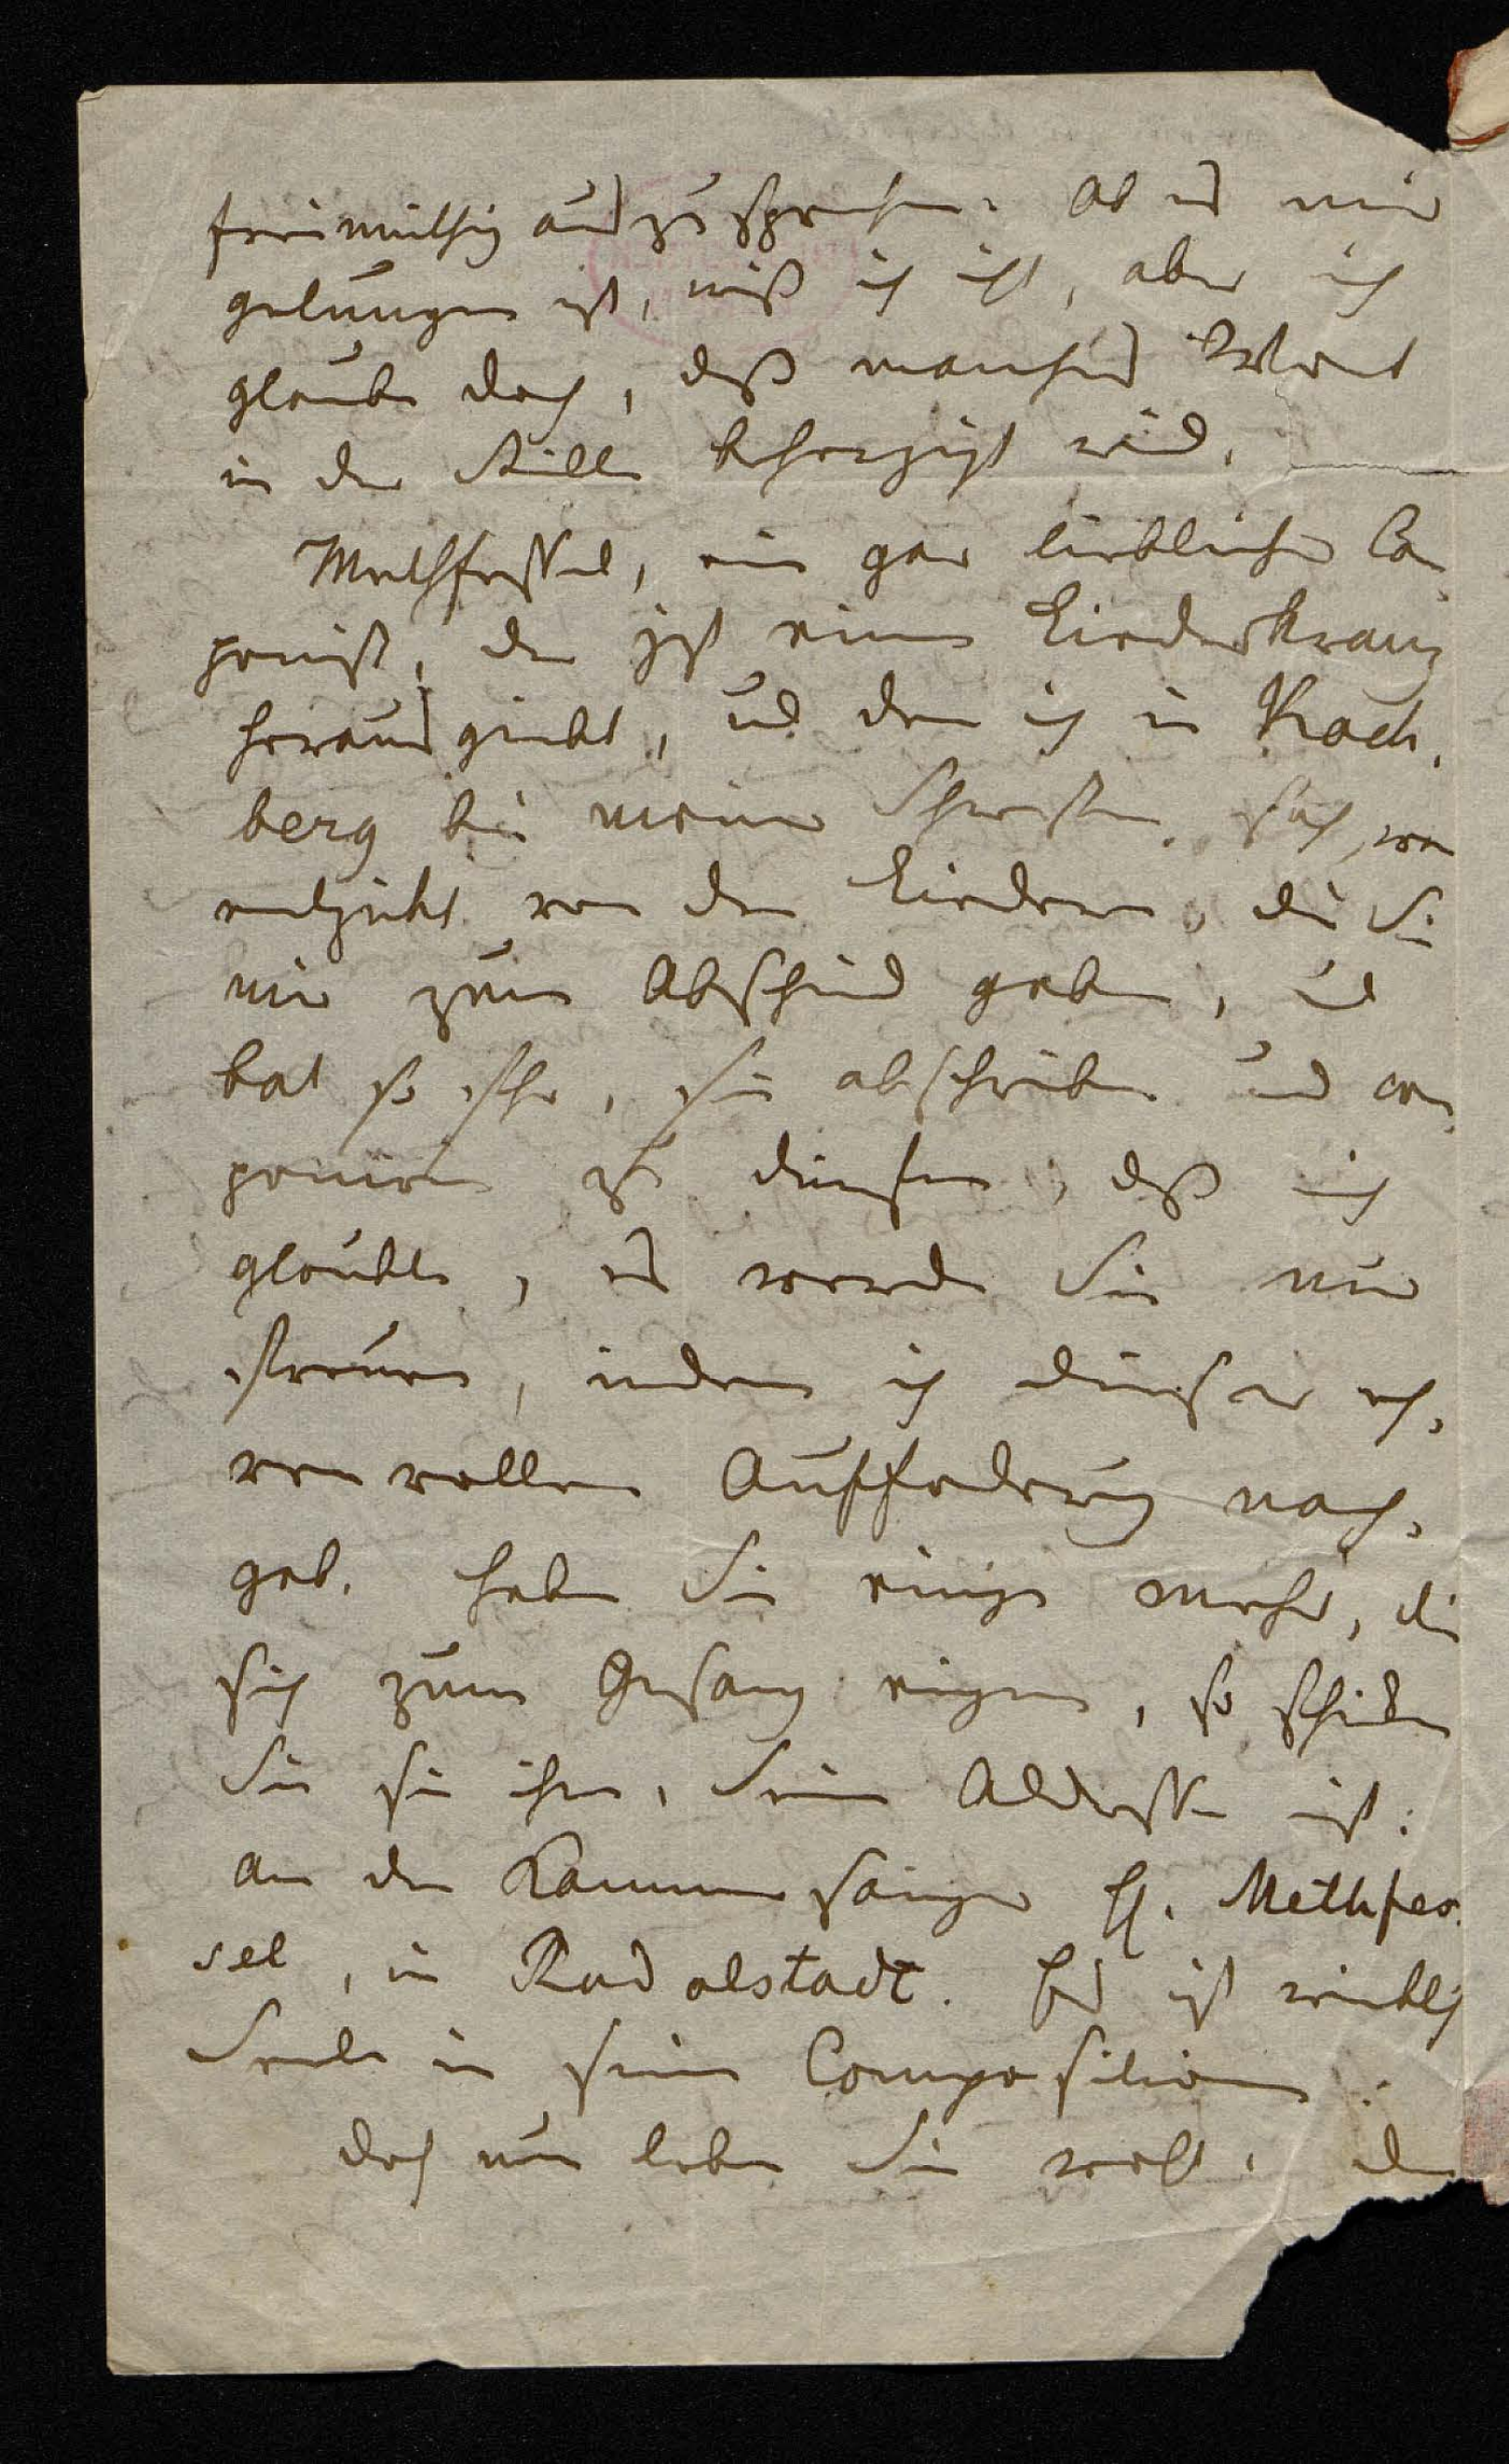 freimüthig auszusprechen. Ob es mir
gelungen ist, weiß ich nicht, aber ich
glaube doch, daß manches Wort
in der Stille beherzigt wird.
Methfessel, ein gar lieblicher Com-
ponist, der jzt einen Liederkranz
herausgiebt, und den ich in Koch-
berg bei meiner Schwester sah, war
entzückt von den Liedern, die Sie
mir zum Abschied gaben, und
bat so sehr, sie abschreiben und com-
poniren zu dürfen, daß ich
glaubte, es werde Sie nur
freuen, indem ich dieser eh-
renvollen Aufforderung nach-
gab. Haben Sie einige mehr, die
sich zum Gesang eignen, so schicken
Sie sie ihm. Seine Addresse ist:
An den Kammersänger H. Methfes-
sel, in Rudolstadt. Es ist wirklich
Seele in seinen Compositionen.
Doch nun leben Sie wohl, der